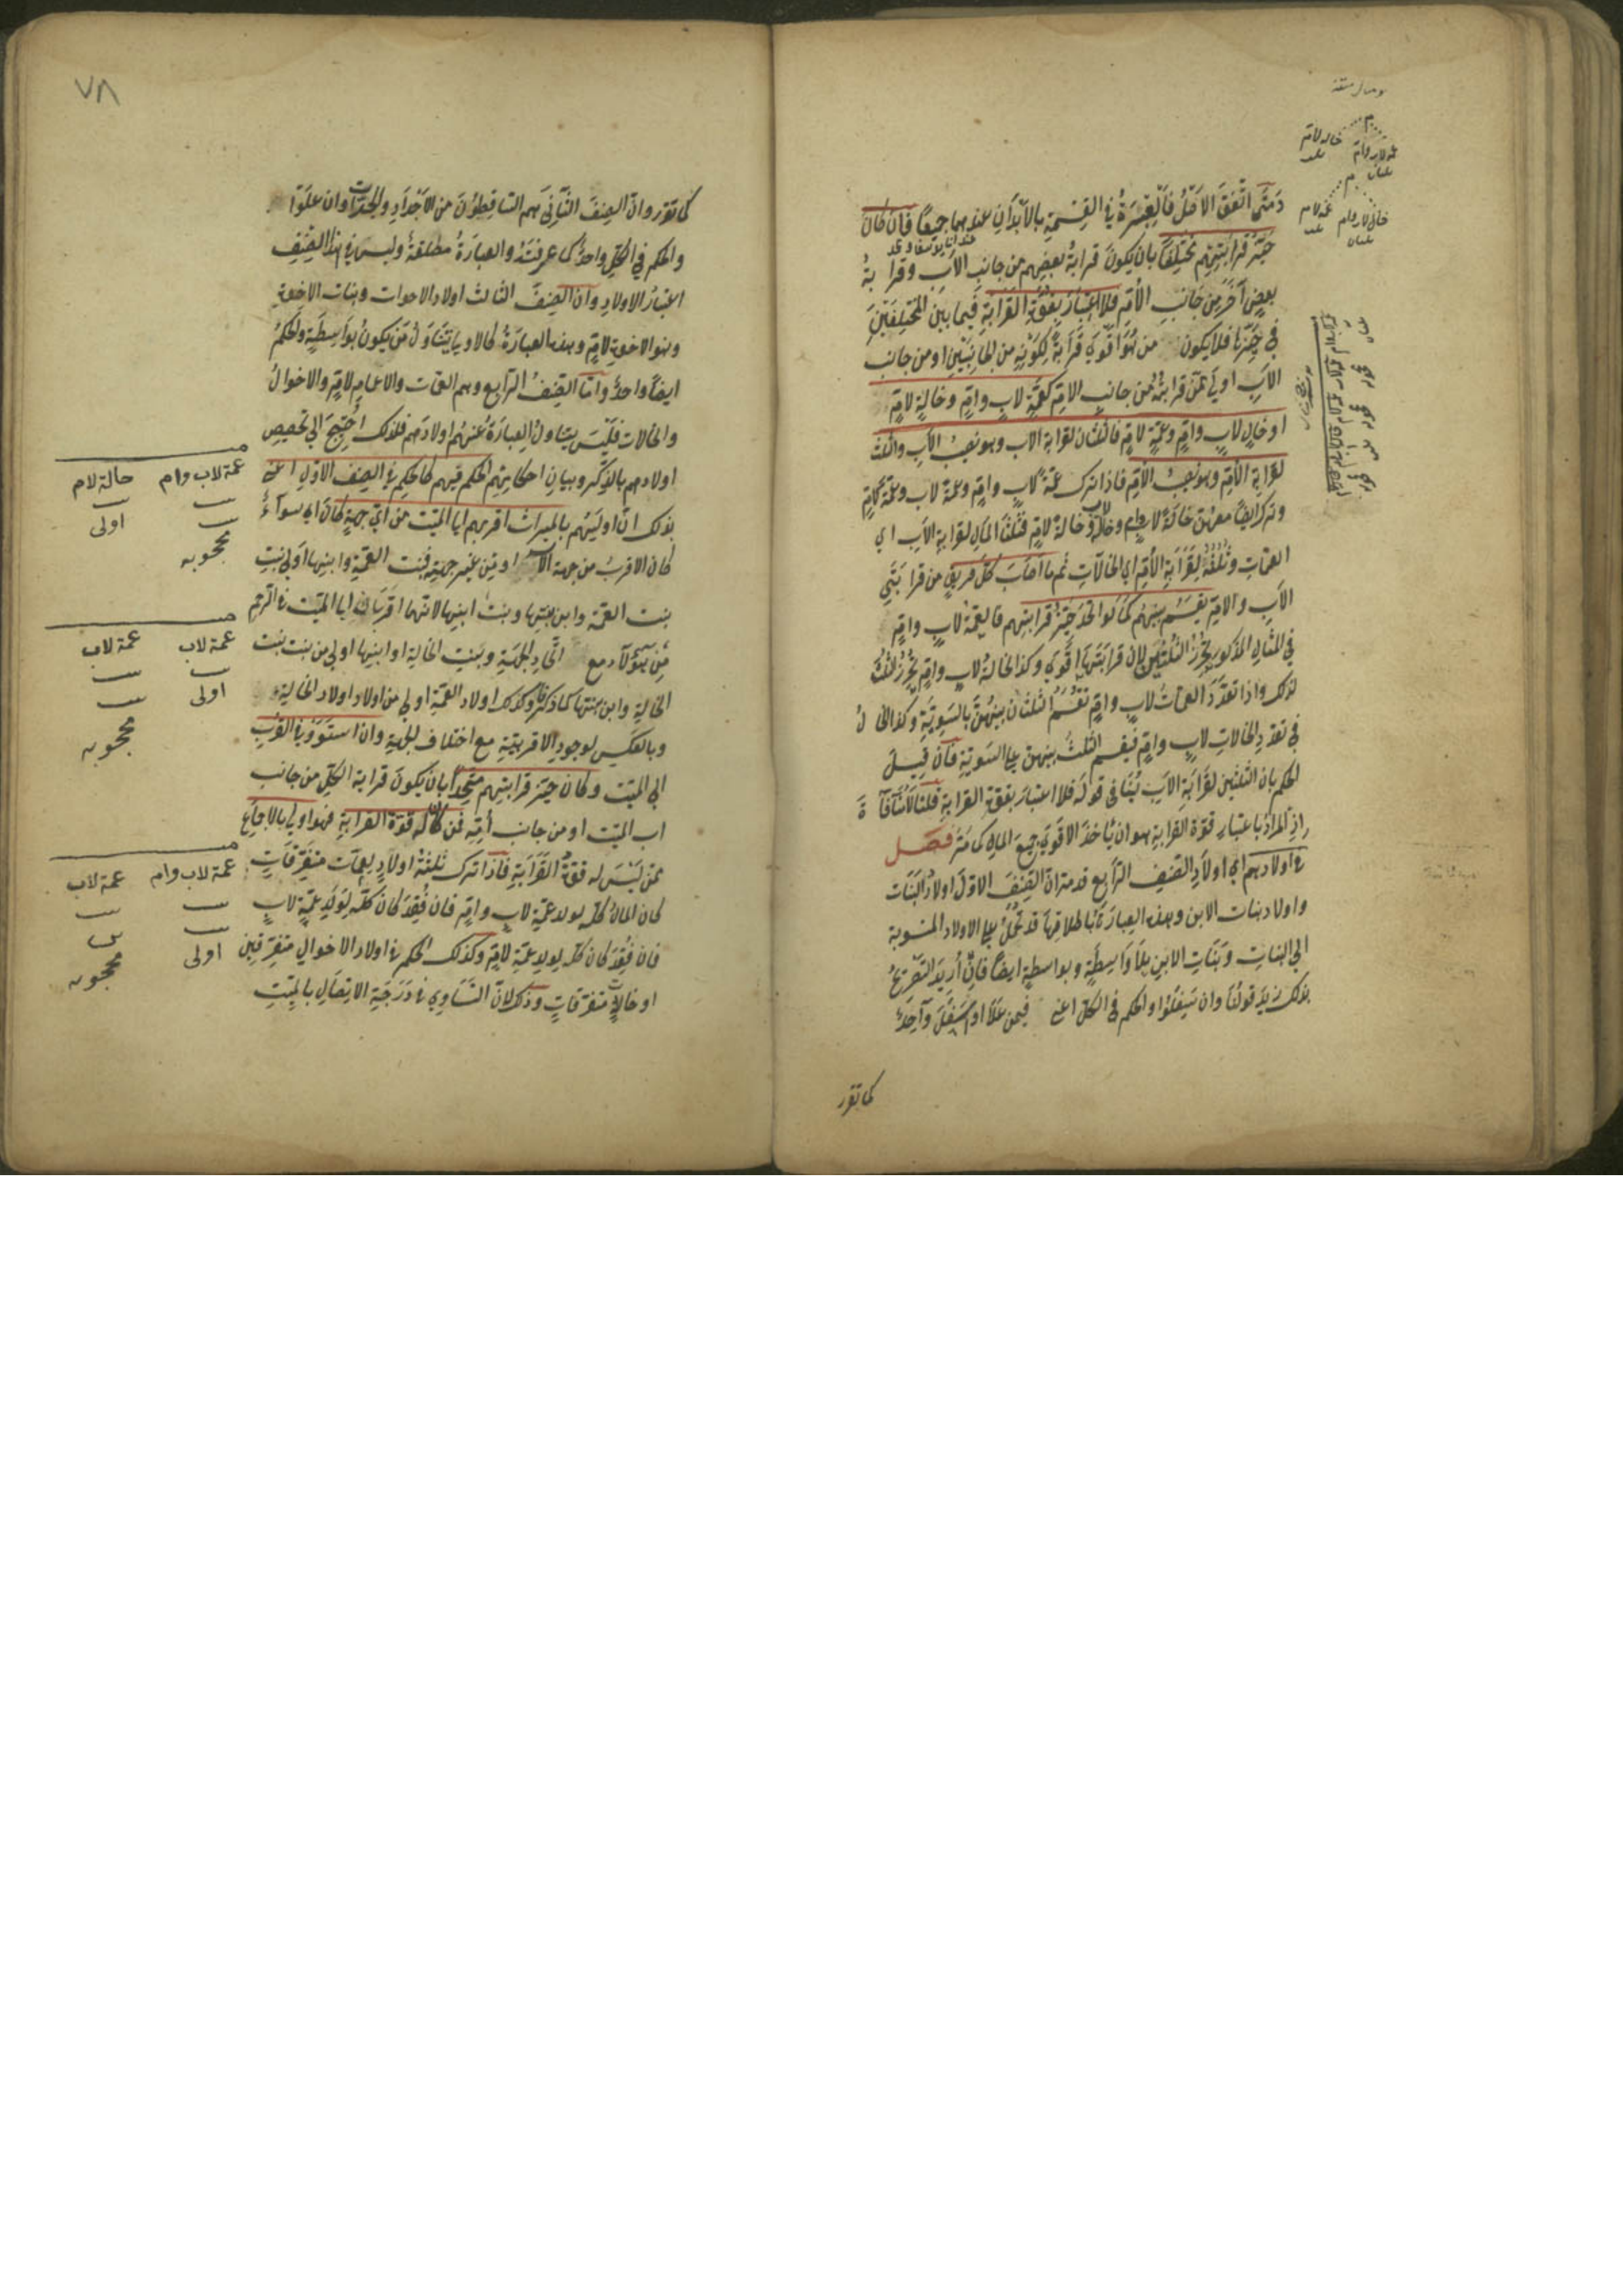 ومتى اتفق الاصل فالعبرة في القسمة بالابدان عندهما جميعا فان كان
حيز قرابتهم مختلفا بان يكون قرابة بعضهم من جانب الاب وقرابة
بعض آخر من جانب الأم فلا اعتبار بقوة القرابة فيما بين المختلفين
في حيزها فلا يكون من هو اقوى قرابة لكونه من الجانبين او من جانب
الاب اولى ممن قرابته من جانب الام كعمة لاب وام وخالة لام
او خال لاب وام وعمة لام فالثلثان لقرابة الاب وهو نصيب الاب والثلث
لقرابة الام وهو نصيب الام فاذا ترك عمة لاب وام وعمة لاب وعمة لام
وترك ايضا معهن خالة لاب وام وخالة لاب وخالة لام فثلثا المال لقرابة الاب اي
العمات وثلثه لقرابة الام اي الخالات ثم ما اصاب كل فريق من قرابتي
الاب والام يقسم بينهم كما لو اتحد حيز قرابتهم فالعمة لاب وام
في المثال المذكور يحرز الثلثين لان قرابتها اقوى وكذا الخالة لاب وام يحرز الثلث
لذلك واذا تعدد العمات لاب وام تقسم الثلثان بينهن بالسوية وكذا الحال
في تعدد الخالات لاب وام فيقسم الثلث بينهن على السوية فان قيل
الحكم بان الثلثين لقرابة الاب ينافي قوله فلا اعتبار بقوة القرابة قلنا لا منافاة
اذ المراد باعتبار قوة القرابة هو ان يأخذ الاقوى جميع المال كما مر فصل
في اولادهم اي اولاد الصنف الرابع قد مر ان الصنف الاول اولاد البنات
واولاد بنات الابن وهذه العبارة باطلاقها قد تحمل على الاولاد المنسوبة
الى البنات وبنات الابن بلا واسطة وبواسطة ايضا فان أريد التصريح
بذلك زيد قولنا وان سفلوا والحكم في الكل اعني فيمن علا او سفل واحد
كما تقرر
٧٨
كما تقرر وان الصنف الثاني هم الساقطون من الاجداد والجدات وان علوا
والحكم في الكل واحد كما عرفته والعبارة مطلقة وليس في هذا الصنف
اعتبار الاولاد وان الصنف الثالث اولاد الاخوات وبنات الاخوة
وبنو الاخوة لام وهذه العبارة كالاولى يتناول من يكون بواسطة والحكم
ايضا واحد واما الصنف الرابع وهم العمات والاعمام لام والاخوال
والخالات فليس يتناول العبارة عنهم اولادهم فلذلك احتيج الى تخصيص
اولادهم بالذكر وبيان احكامهم الحكم فيهم كالحكم في الصنف الاول اعني
بذلك ان اوليهم بالميراث اقربهم الى الميت من اي جهة كان اي سواء
كان الاقرب من جهة الاب او من غير جهته فبنت العمة وابنها اولى من بنت
بنت العمة وابن بنتها وبنت ابنها لانهما اقربان الى الميت في الرحم
من هؤلاء مع اتحاد الجهة وبنت الخالة او ابنها اولى من بنت بنت
الخالة وابن بنتها كما ذكرنا وكذلك اولاد العمة اولى من اولاد اولاد الخالة
وبالعكس لوجود الاقربية مع اختلاف الجهة وان استووا في القرب
الى الميت وكان حيز قرابتهم متحدا بان يكون قرابة الكل من جانب
اب الميت او من جانب أمه فمن كان له قوة القرابة فهو اولى بالاجماع
ممن ليس له قوة القرابة فاذا ترك ثلثة اولاد لعمات متفرقات
كان المال كله لولد عمة لاب وام فان فقد كان كله لولد عمة لاب
فان فقد كان كله لولد عمة لام وكذلك الحكم في اولاد الاخوال متفرقين
او خالات متفرقات وذلك لان التساوي في درجة الاتصال بالميت
عمة لاب وام خالة لام
اولى
محجوبه
عمة لاب عمة لاب
اولى
محجوبه
عمة لاب وام عمة لاب
اولى
محجوبه